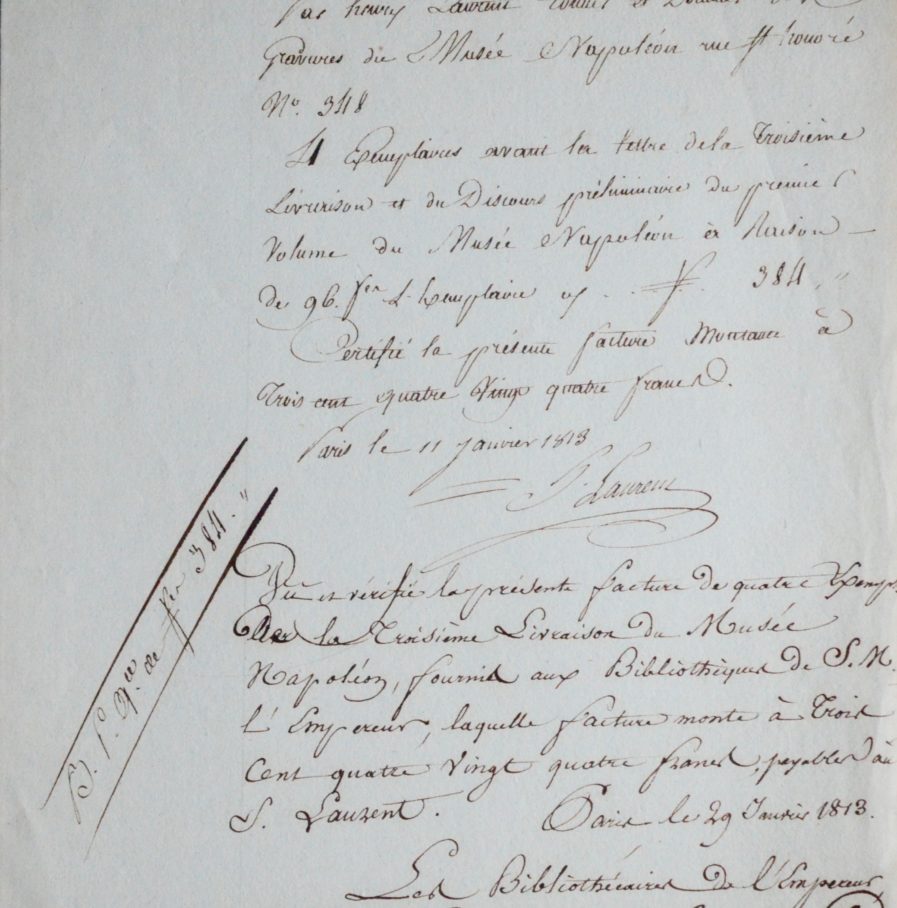 Par henry Laurent
Gravures du Musée Napoléon rue St honoré
No. 348
4 Exemplaires avant la lettre de la Troisième
Livraison et du Discours préliminaire du premier
Volume du Musée Napoléon à Raison
de 96. frs L'Exemplaire cy . . . f. 384 "
Certifié la présente facture Montant à
Trois cent quatre Vingt quatre francs.
Paris le 11 Janvier 1813
h. Laurent
Vu et vérifié la présente facture de quatre Exempl
de la Troisième Livraison du Musée
Napoléon, fournis aux Bibliothèques de S. M.
l'Empereur, laquelle facture monte à Trois
Cent quatre Vingt quatre francs, payables au
S. Laurent. Paris le 29 Janvier 1813.
Les Bibliothécaires de l'Empereur
B. P. qce. de fr 384. "